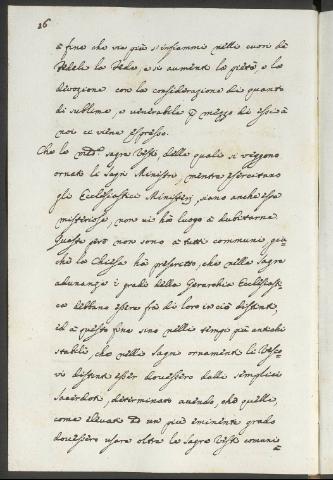 26
a fine che via più s'infiammi nelli cuori de
Fedeli la Fede, e si aumenti la pietà, e la
divozione con la considerazione di quanto
di sublime, e venerabile p mezzo di essi a
noi ci viene espresso.
Che le med.e sagre Vesti delle quali si veggono
ornati li Sagri Ministri, mentre esercitano
gli Ecclesiastici Ministerj, siano anch'esse
misteriose, non vi ha luogo a dubitarne.
Queste però non sono a tutti communi, poi
chè la Chiesa ha prescritto, che nelle sagre
adunanze i gradi della Gerarchia Ecclesiasti
ca debbano essere fra di loro in ciò distinti,
ed a questo fine sino nelli tempi più antichi
stabilì, che nelli Sagri ornamenti li Vesco
vi distinti esser dovessero dalli semplici
Sacerdoti, determinato avendo, che quelli,
come elevati ad un più eminente grado
dovessero usare oltre le sagre Vesti comuni